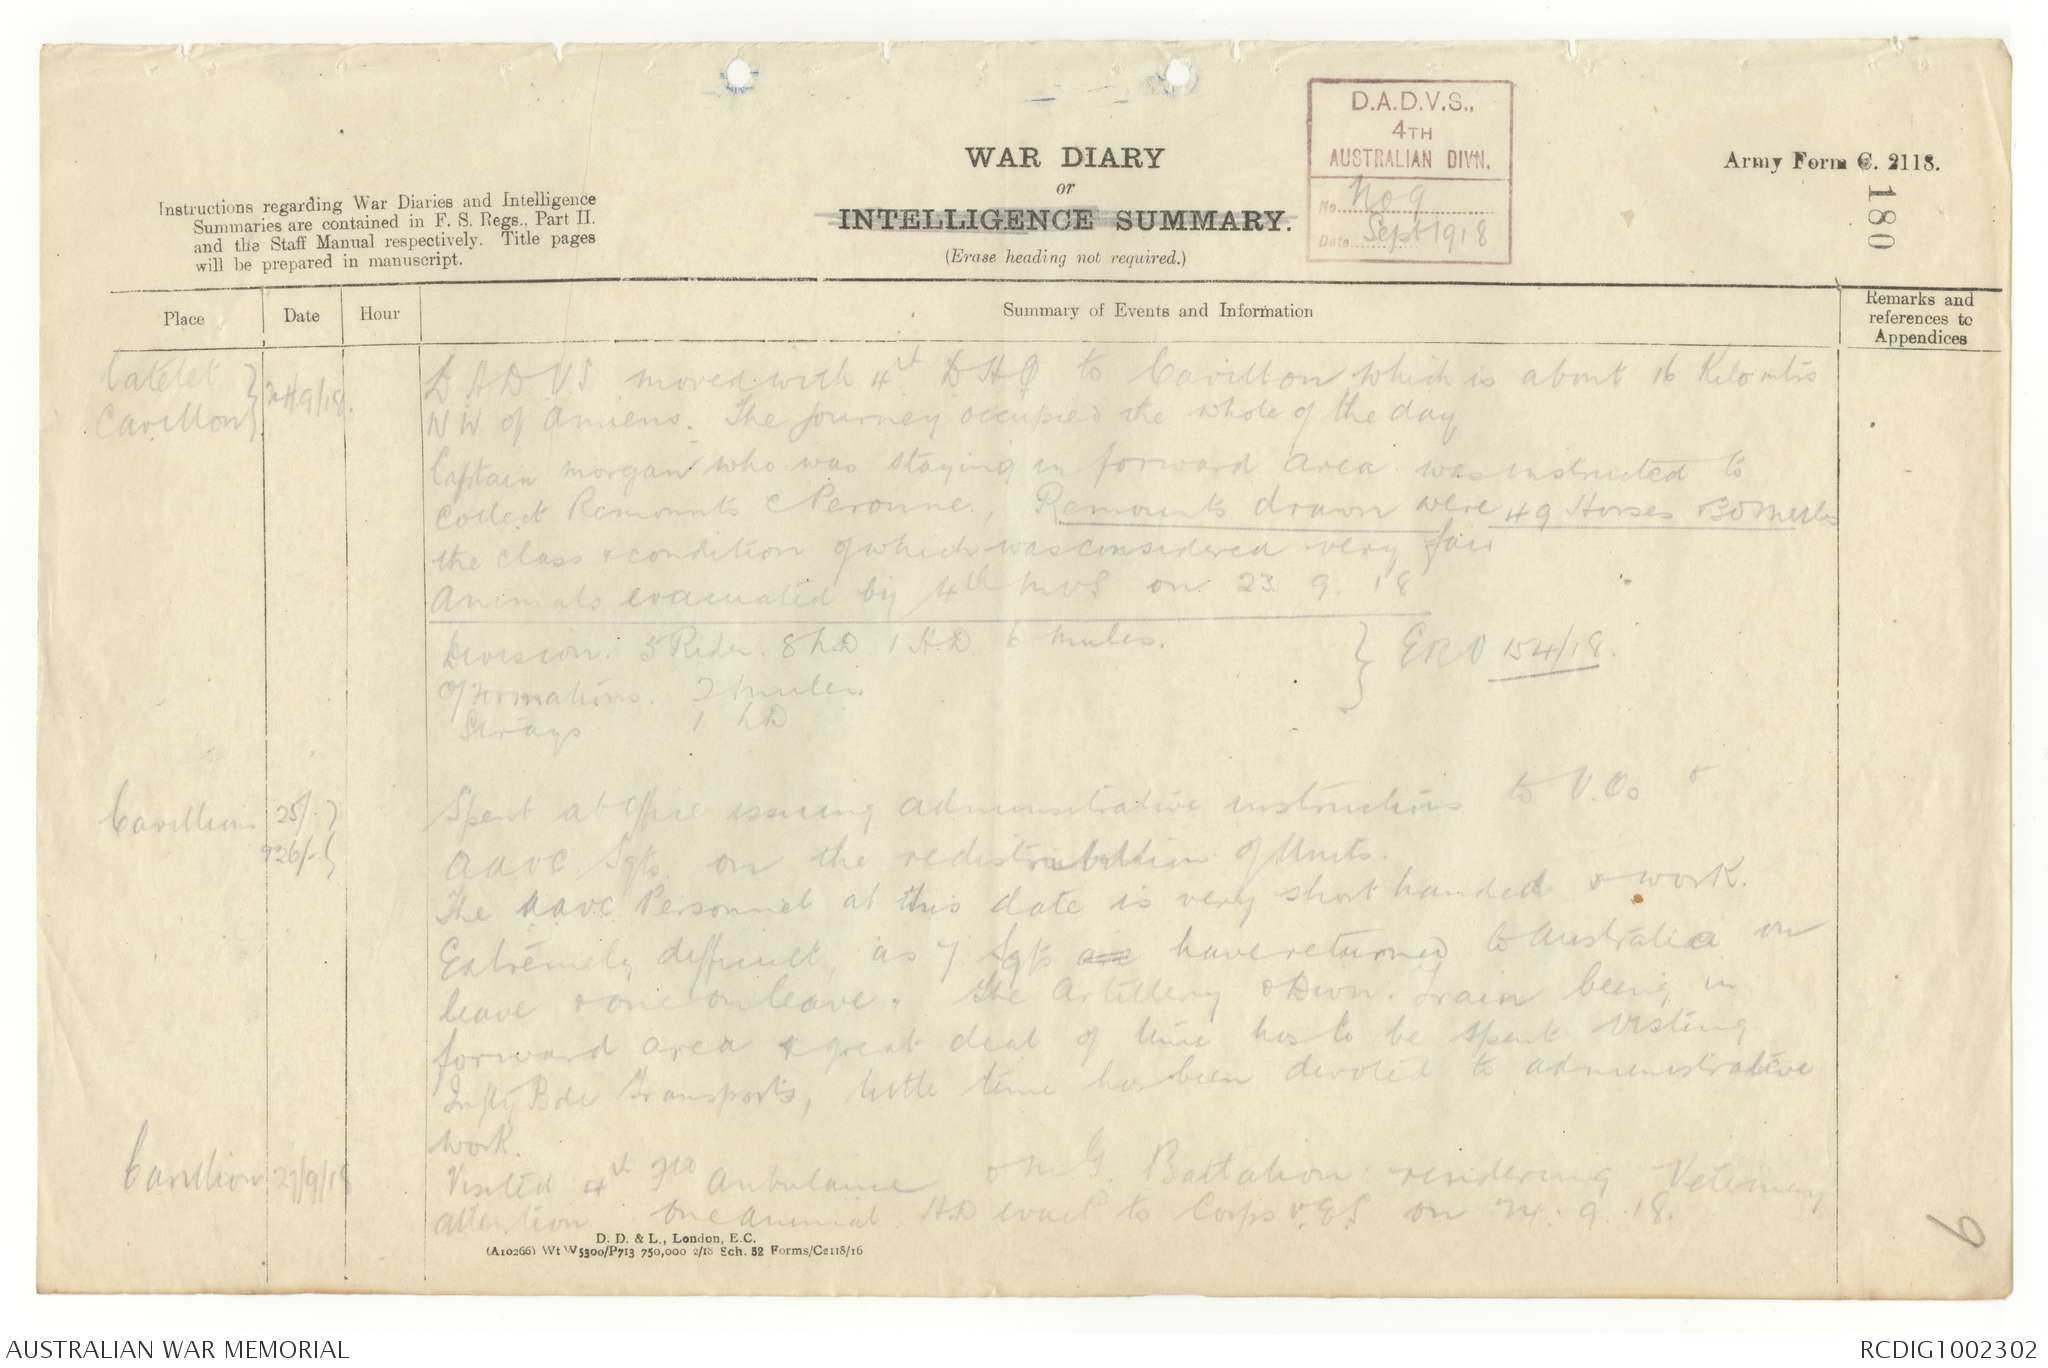 D.A.D.V.S.,
4TH
AUSTRALIAN DIVN.
No. No 9
Date Sept 1918
WAR DIARY
or
INTELLIGENCE SUMMARY.
(Erase heading not required.)
Army Form C. 2118.
180
Instructions regarding War Diaries and Intelligence
Summaries are contained in F. S. Regs., Part II.
and the Staff Manual respectively. Title pages
will be prepared in manuscript.
Place
Date
Hour
Summary of Events and Information
Remarks and
references to
Appendices
Catelet
Cavillon
24/9/18.
D A D V S moved with 4th D H Q to Cavillon which is about 16 Kilomtrs
N W of Amiens. The journey occupied the whole of the day
Captain Morgan who was staying in forward area was instructed to
collect Remounts Peronne, Remounts drawn were 49 Horses 30 Mules
the class & condition of which was considered very fair
Animals evacuated by 4th MVS on 23 9. 18
Division. 5 Rider. 8 LD 1 H.D. 6 Mules.
Of Formations. 2 Mules.
Strays 1 LD
ERV 154/18.
Cavillon
25/-
26/-
Spent at Office issuing administrative instructions to V.Os &
AAVC Sgts. on the redistribution of Units.
The AAVC Personnel at this date is very short handed & work.
Extremely difficult, as 7 Sgts are have returned to Australia on
leave & one on leave. The Artillery & Divn. Train being in
forward area & great deal of time has to be spent visting
Infty Bde Transports, little time has been devoted to administrative
work.
Cavillion
27/9/18
Visited 4th Fld Ambulance & M.G. Battalion rendering Veterinary
attention One Animal HD evac'd to Corps V.E.S on 24. 9. 18.
D. D. & L., London, E.C.
(A10266) Wt W5300/P713 750,000 2/18 Sch. 52 Forms/C2118/16
9
AUSTRALIAN WAR MEMORIAL
RCDIG1002302